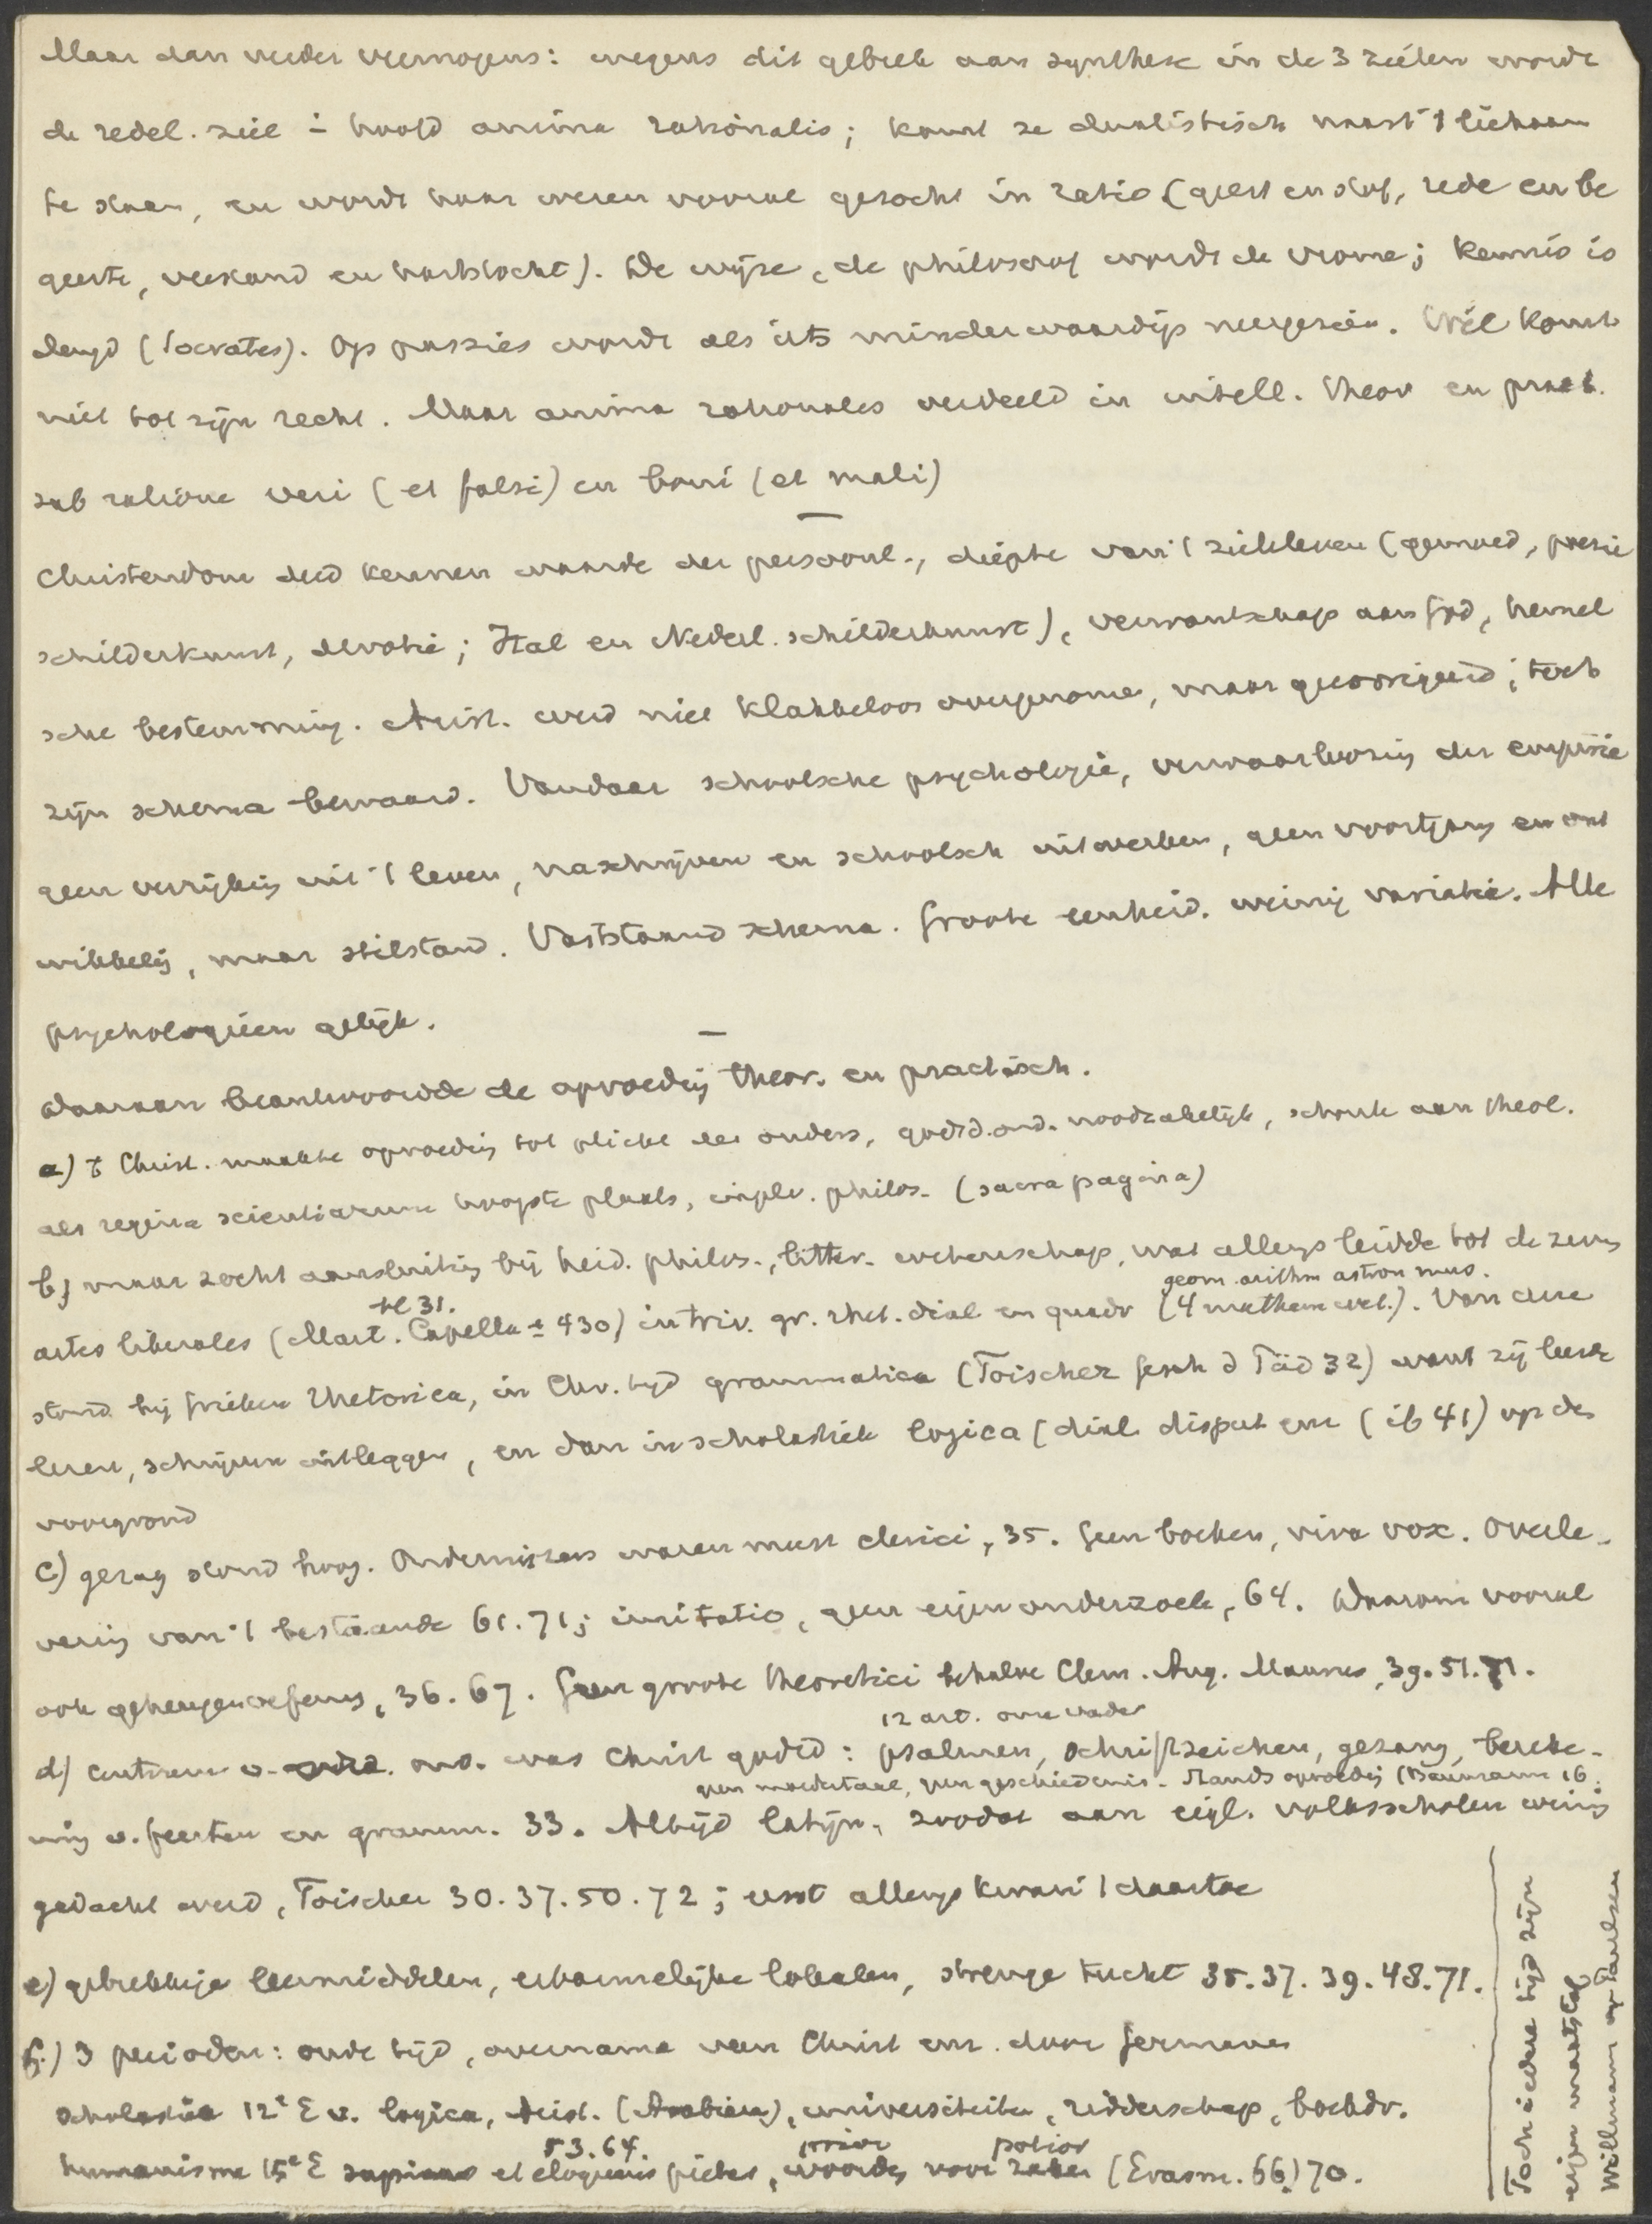 Maar dan verder vermogens: wegens dit gebrek aan synthese in de 3 zielen wordt
de redel. ziel - hoofd anima rationalis; komt ze dualistisch naast 't lichaam
te staan, en wordt haar wezen vooral gezocht in ratio (geest en stof, rede en be
geerte, verstand en hartstocht). De wijze, de philosoof wordt de vrome; kennis is
deugd (Socrates). Op passies wordt als iets minderwaardigs neergezien. Wil komt
niet tot zijn recht. Maar anima rationales verdeeld in intell. theor en pract.
sub ratione veri (et falsi) en boni (et mali)
Christendom deed kennen waarde der persoonl., diepte van 't zieleleven (gemoed, poezie
schilderkunst, devotie; Ital en Nederl. schilderkunst), verwantschap aan God, hemel
sche bestemming. Arist. werd niet klakkeloos overgenomen, maar gecorrigeerd; toch
zijn schema bewaard. Vandaar schoolsche psychologie, verwaarloozing der empirie
geen verrijking uit 't leven, naschrijven en schoolsch uitwerken, geen voortgang en ont
wikkeling, maar stilstand. Vaststaand schema. Groote eenheid. weinig variatie. Alle
psychologieen gelijk.
Daaraan beantwoordde de opvoeding theor. en practisch.
a) 't Christ. maakte opvoeding tot plicht der ouders, godsd. ond. noodzakelijk, schonk aan theol.
als regina scientiarum hoogste plaats, inplv. philos. (sacra pagina)
b) maar zocht aansluiting bij heid. philos., litter. wetenschap, wat allengs leidde tot de zeven
geom. arithm astron mus.
bl 31.
artes liberales (Mart. Capella ± 430) in triv. gr. rhet. dial en quadr (4 mathem wet.). Van deze
stond bij Grieken Rhetorica, in Chr. tijd grammatica (Toischer Gesch d Päd 32) want zij leerde
lezen, schrijven uitleggen, en dan in scholastiek logica (dial disput enz (ib 41) op den
voorgrond
c) gezag stond hoog. Onderwijzers waren meest clerici, 35. Geen boeken, viva vox. Overle-
vering van 't bestaande 61. 71; imitatio, geen eigen onderzoek, 64. Daarom vooral
ook geheugenoefening, 36. 67. Geen groote theoretici behalve Clem. Aug. Maurus, 39. 51. 71.
12 art. onze vader
d) centrum v. ond. was Christ godsd: psalmen, schriftteeken, gezang, bereke-
geen moedertaal, geen geschiedenis. Stands opvoeding (Baumann 16.
ning v. feesten en gramm. 33. Altijd latijn, zoodat aan eigl. volksscholen weinig
gedacht werd, Toischer 30. 37. 50. 72; eerst allengs kwam 't daartoe
e) gebrekkige leermiddelen, erbarmelijke lokalen, strenge tucht 35. 37. 39. 48. 71.
f.) 3 perioden: oude tijd, overname van Christ enz. door Germanen
scholastiek 12e E v. logica, Arist. (Arabieren), universiteiten, ridderschap, boekdr.
53. 64. prior potior
humanisme 15e E sapiens et eloquens pietas, woorden voor zaken (Erasm. 66) 70.
Toch iedere tijd zijn
eigen maatstaf
Willmann op Paulsen